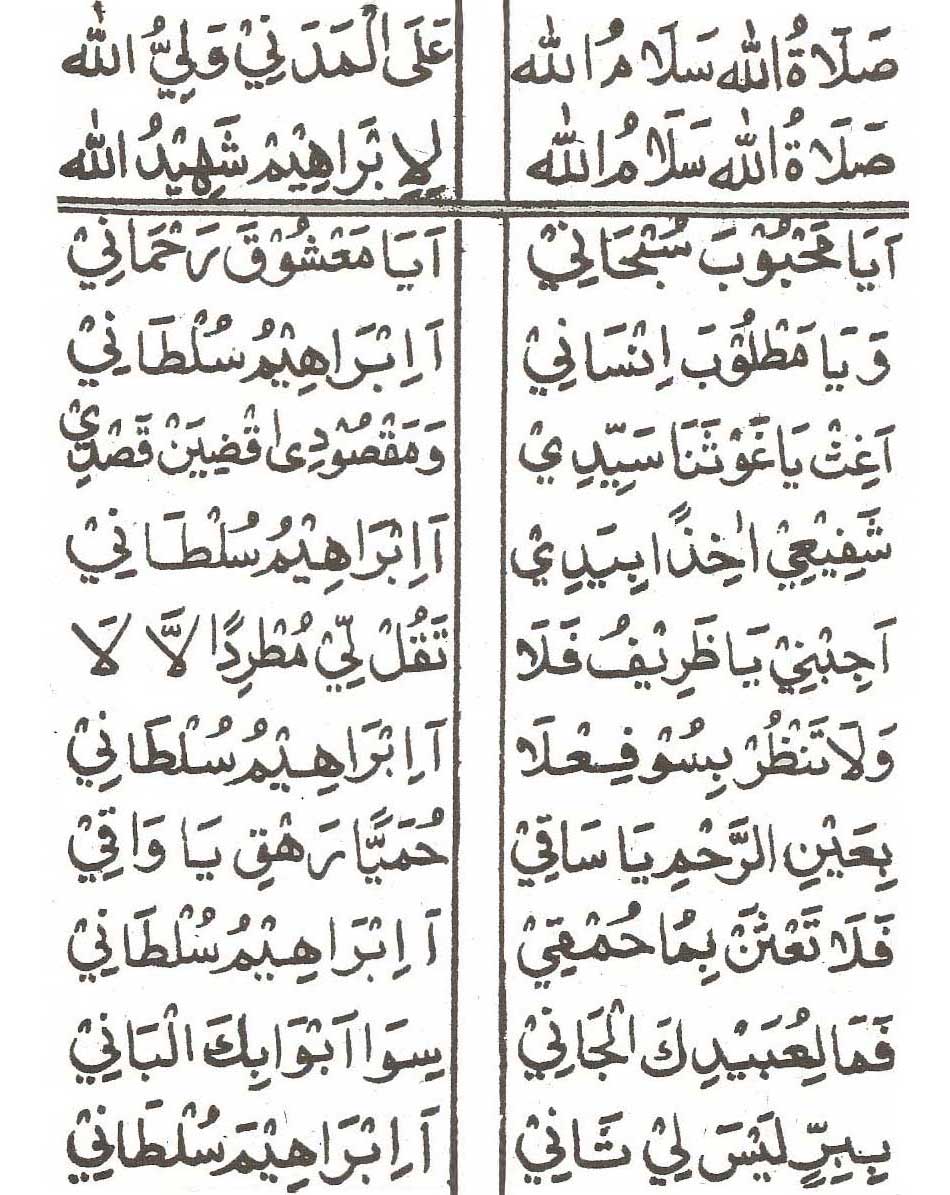 صَلَاةُ اللّٰه سَلَامُ اللّٰه عَلَى الْمَدَنِيْ وَلِيُّ اللّٰه
صَلَاةُ اللّٰه سَلَامُ اللّٰه لِاِبْرَاهِيْمْ شَهِيْدُ اللّٰه
اَيَا مَحْبُوْبَ سُبْحَانِيْ اَيَا مَعْشُوْقَ رَحْمَانِيْ
وَيَا مَطْلُوْبَ اِنْسَانِيْ اَاِبْرَاهِيْمُ سُلْطَانِيْ
اَغِثْ يَا غَوْثَنَا سَيِّدِيْ وَمَقْصُوْدِىْ اقْضِيَنْ قَصْدِيْ
شَفِيْعِيْ اٰخِذًا بِيَدِيْ اَاِبْرَاهِيْمُ سُلْطَانِيْ
اَجِبْنِيْ يَا ظَرِيْفُ فَلَا تَقُلْ لِّيْ مُطْرِدًا لَّا لَا
وَلَا تَنْظُرْ بِسُوْ فِعْلَا اَاِبْرَاهِيْمُ سُلْطَانِيْ
بِعَيْنِ الرَّحْمِ يَا سَاقِيْ حُمَيَّا رَهْقِ يَا وَاقِيْ
فَلَا تَعْتَنَّ بِمَا حُمْقِيْ اَاِبْرَاهِيْمُ سُلْطَانِيْ
فَمَا لِعُبَيْدِكَ الْجَانِيْ سِوَا اَبْوَابِكَ الْبَانِيْ
بِبِرٍّ لَيْسَ لِيْ ثَانِيْ اَاِبْرَاهِيْمَ سُلْطَانِيْ